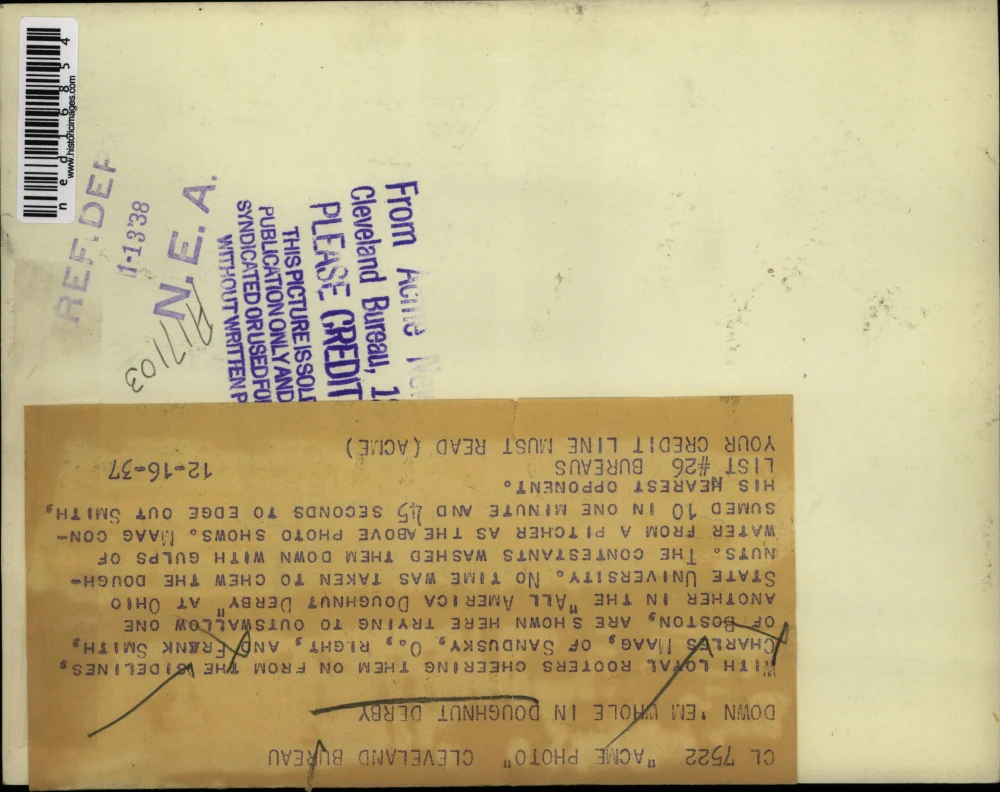 n e d 1 6 8 5 4
www.historicimages.com
REF. DEP
1-13'38
N. E. A.
A17103
From Acme Ne
Cleveland Bureau, 1
PLEASE CREDIT
THIS PICTURE IS SOL
PUBLICATION ONLY AND
SYNDICATED OR USED FO
WITHOUT WRITTEN P
CL 7522 "ACME PHOTO" CLEVELAND BUREAU
DOWN 'EM WHOLE IN DOUGHNUT DERBY
WITH LOYAL ROOTERS CHEERING THEM ON FROM THE SIDELINES,
CHARLES MAAG, OF SANDUSKY, O., RIGHT, AND FRANK SMITH,
OF BOSTON, ARE SHOWN HERE TRYING TO OUTSWALLOW ONE
ANOTHER IN THE "ALL AMERICA DOUGHNUT DERBY" AT OHIO
STATE UNIVERSITY. NO TIME WAS TAKEN TO CHEW THE DOUGH-
NUTS. THE CONTESTANTS WASHED THEM DOWN WITH GULPS OF
WATER FROM A PITCHER AS THE ABOVE PHOTO SHOWS. MAAG CON-
SUMED 10 IN ONE MINUTE AND 45 SECONDS TO EDGE OUT SMITH,
HIS NEAREST OPPONENT.
LIST #26 BUREAUS 12-16-37
YOUR CREDIT LINE MUST READ (ACME)